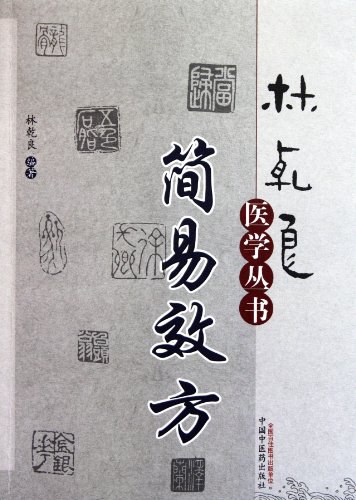 林乾良
医学丛书
简易效方
林乾良 编著
当归
五色
龙骨
金银
全国百佳图书出版单位
中国中医药出版社